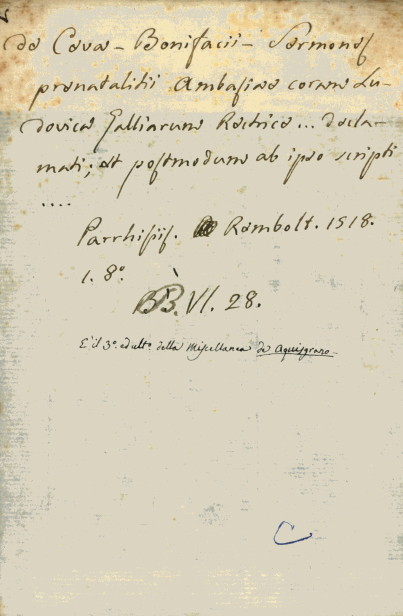 de Ceva - Bonifacii - Sermones
prenatalitii Ambasiae coram Lu-
dovica Galliarum Rectrice... decla-
mati; et postmodum ab ipso scripti
....
Parrhisiis. Rembolt. 1518.
1. 8º.
BB. VI. 28.
E' il 3º. ed ultº. della Miscellanea de Aquisgrano
C